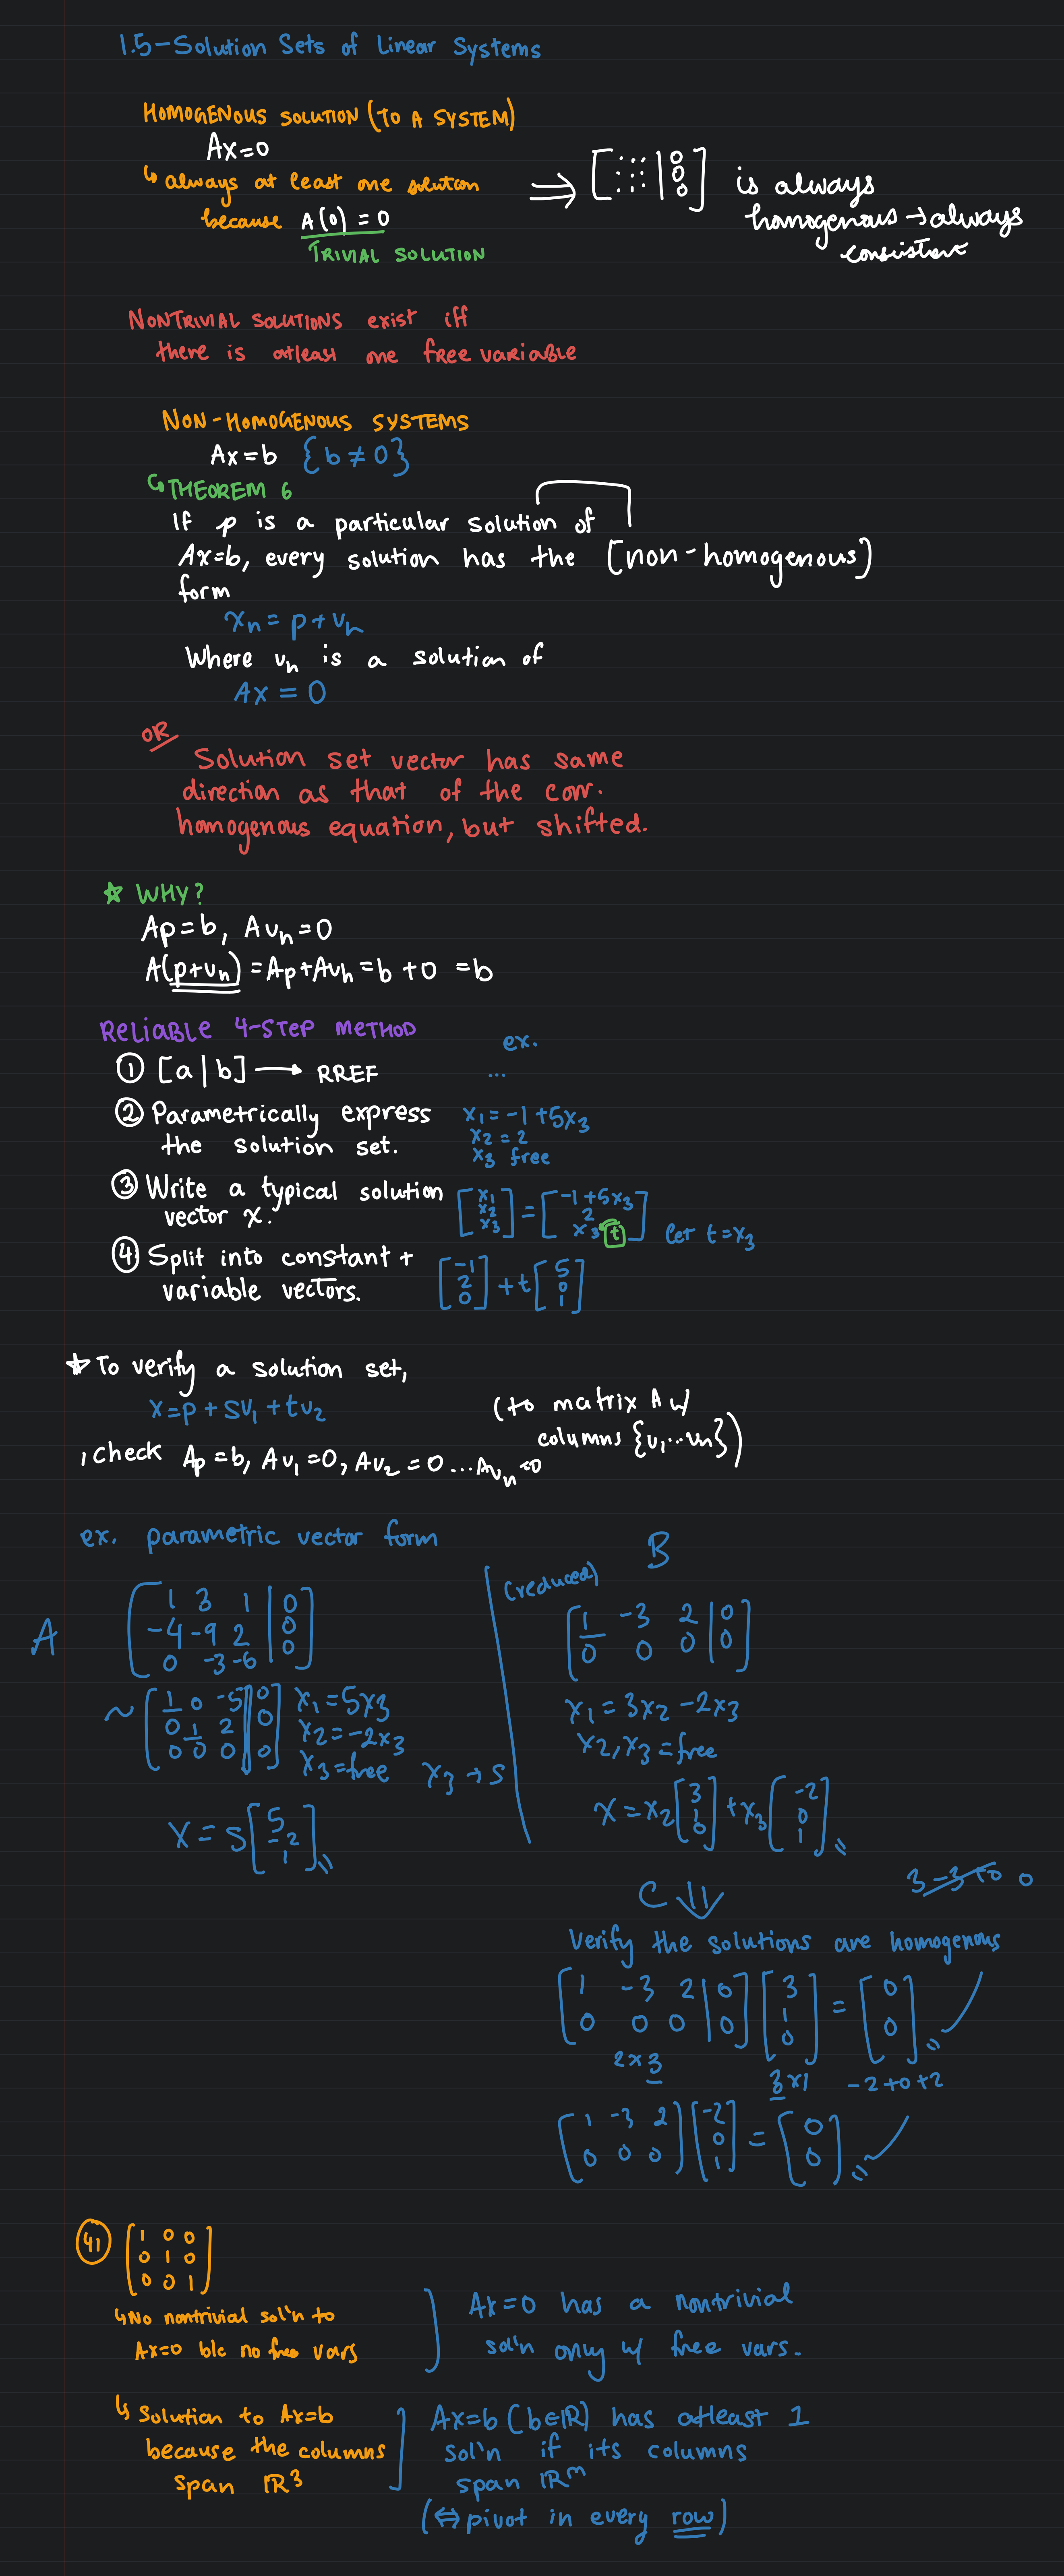 1.5-Solution Sets of Linear Systems
HOMOGENOUS SOLUTION (TO A SYSTEM)
Ax=0
↳ always at least one solution
because A(0) = 0
TRIVIAL SOLUTION
⇒ [⋮⋮⋮ | 0 0 0] is always
homogenous → always
consistent
NONTRIVIAL SOLUTIONS exist iff
there is atleast one free variable
NON-HOMOGENOUS SYSTEMS
Ax=b {b ≠ 0}
↳ THEOREM 6
If p is a particular solution of
Ax=b, every solution has the [non-homogenous]
form
xn = p + vh
Where vh is a solution of
Ax = 0
OR
Solution set vector has same
direction as that of the corr.
homogenous equation, but shifted.
☆ WHY?
Ap=b, Avh=0
A(p+vh) = Ap+Avh = b + 0 = b
RELIABLE 4-STEP METHOD
ex.
① [a|b] → RREF
...
② Parametrically express
the solution set.
x1 = -1 + 5x3
x2 = 2
x3 free
③ Write a typical solution
vector x.
[x1 x2 x3] = [-1+5x3 2 x3 t] let t = x3
④ Split into constant +
variable vectors.
[-1 2 0] + t [5 0 1]
☆ To verify a solution set,
x = p + sv1 + tv2
(to matrix A w/
columns {v1...vn})
, check Ap = b, Av1 = 0, Av2 = 0 ... Avn = 0
ex. parametric vector form
A
1 3 1 | 0
-4 -9 2 | 0
0 -3 -6 | 0
~
1 0 -5 | 0
0 1 2 | 0
0 0 0 | 0
x1 = 5x3
x2 = -2x3
x3 = free
x3 → s
X = s [5 -2 1]
B
(reduced)
1 -3 2 | 0
0 0 0 | 0
x1 = 3x2 - 2x3
x2, x3 = free
X = x2 [3 1 0] + x3 [-2 0 1]
C ⇓
3-3+0 0
Verify the solutions are homogenous
[1 -3 2 | 0
0 0 0 | 0] [3 1 0] = [0 0] ✓
2×3
3×1
-2+0+2
[1 -3 2
0 0 0] [-2 0 1] = [0 0] ✓
41
1 0 0
0 1 0
0 0 1
↳ No nontrivial sol'n to
Ax=0 b/c no free vars
Ax=0 has a nontrivial
sol'n only w/ free vars.
↳ Solution to Ax=b
because the columns
span ℝ3
Ax=b (b∈ℝ) has atleast 1
sol'n if its columns
span ℝm
(⇔ pivot in every row)